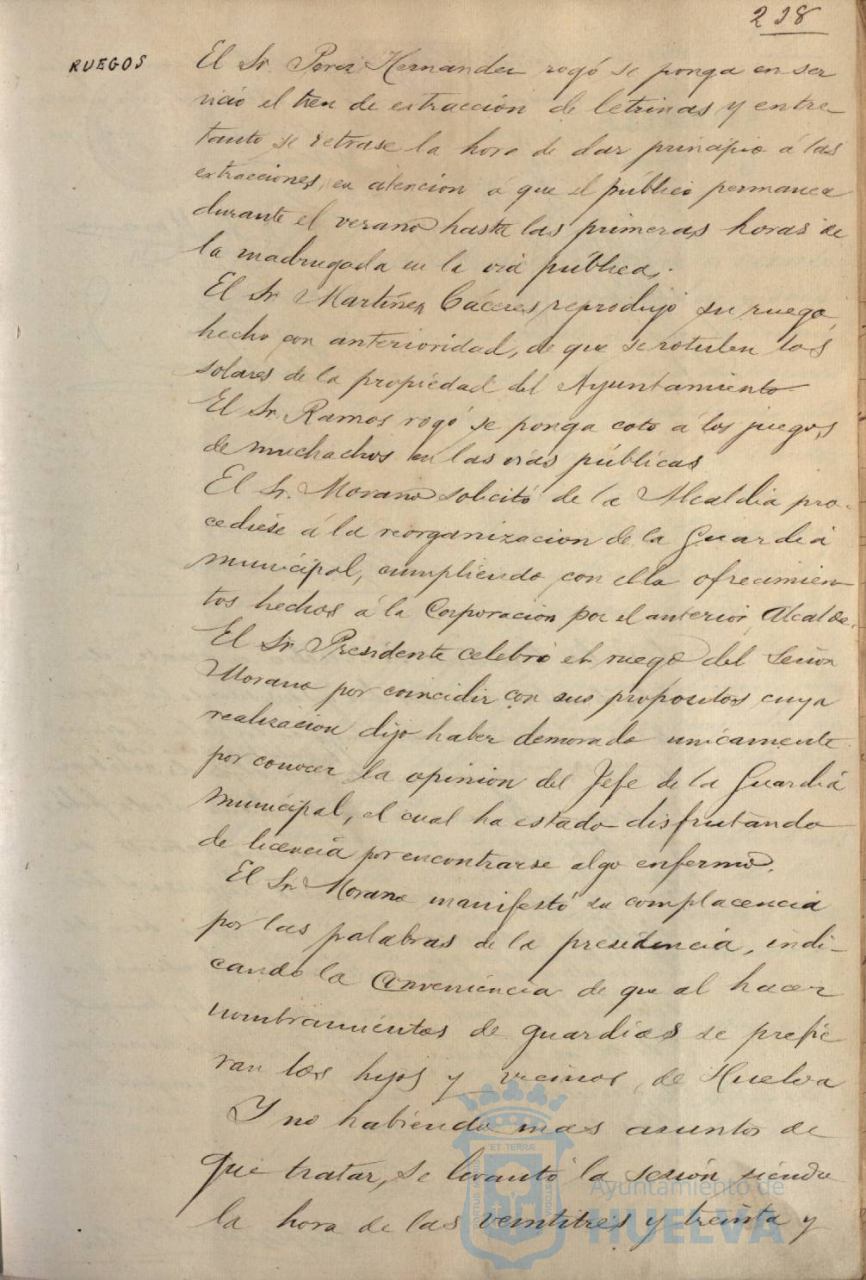 218
RUEGOS
El Sr. Perez Hernandez rogó se ponga en ser
vicio el tren de extracción de letrinas y entre-
tanto se retrase la hora de dar principio á las
extracciones, en atencion á que el público permanece
durante el verano hasta las primeras horas de
la madrugada en la via pública.
El Sr. Martínez Cáceres reprodujo su ruego,
hecho con anterioridad, de que se rotulen los
solares de la propiedad del Ayuntamiento
El Sr. Ramos rogó se ponga coto á los juegos
de muchachos en las vias públicas
El Sr. Morano solicitó de la Alcaldia pro-
cediese á la reorganizacion de la Guardia
municipal, cumpliendo con ella ofrecimien-
tos hechos á la Corporacion por el anterior Alcalde.
El Sr. Presidente celebró el ruego del Señor
Morano por coincidir con sus propositos cuya
realizacion dijo haber demorado unicamente
por conocer la opinion del Jefe de la Guardia
municipal, el cual ha estado disfrutando
de licencia por encontrarse algo enfermo.
El Sr. Morano manifestó su complacencia
por las palabras de la presidencia, indi-
cando la conveniencia de que al hacer
nombramientos de guardias se prefie
ran los hijos y vecinos de Huelva
Y no habiendo mas asuntos de
que tratar, se levantó la sesión siendo
la hora de las veintitres y treinta y
Ayuntamiento de
HUELVA